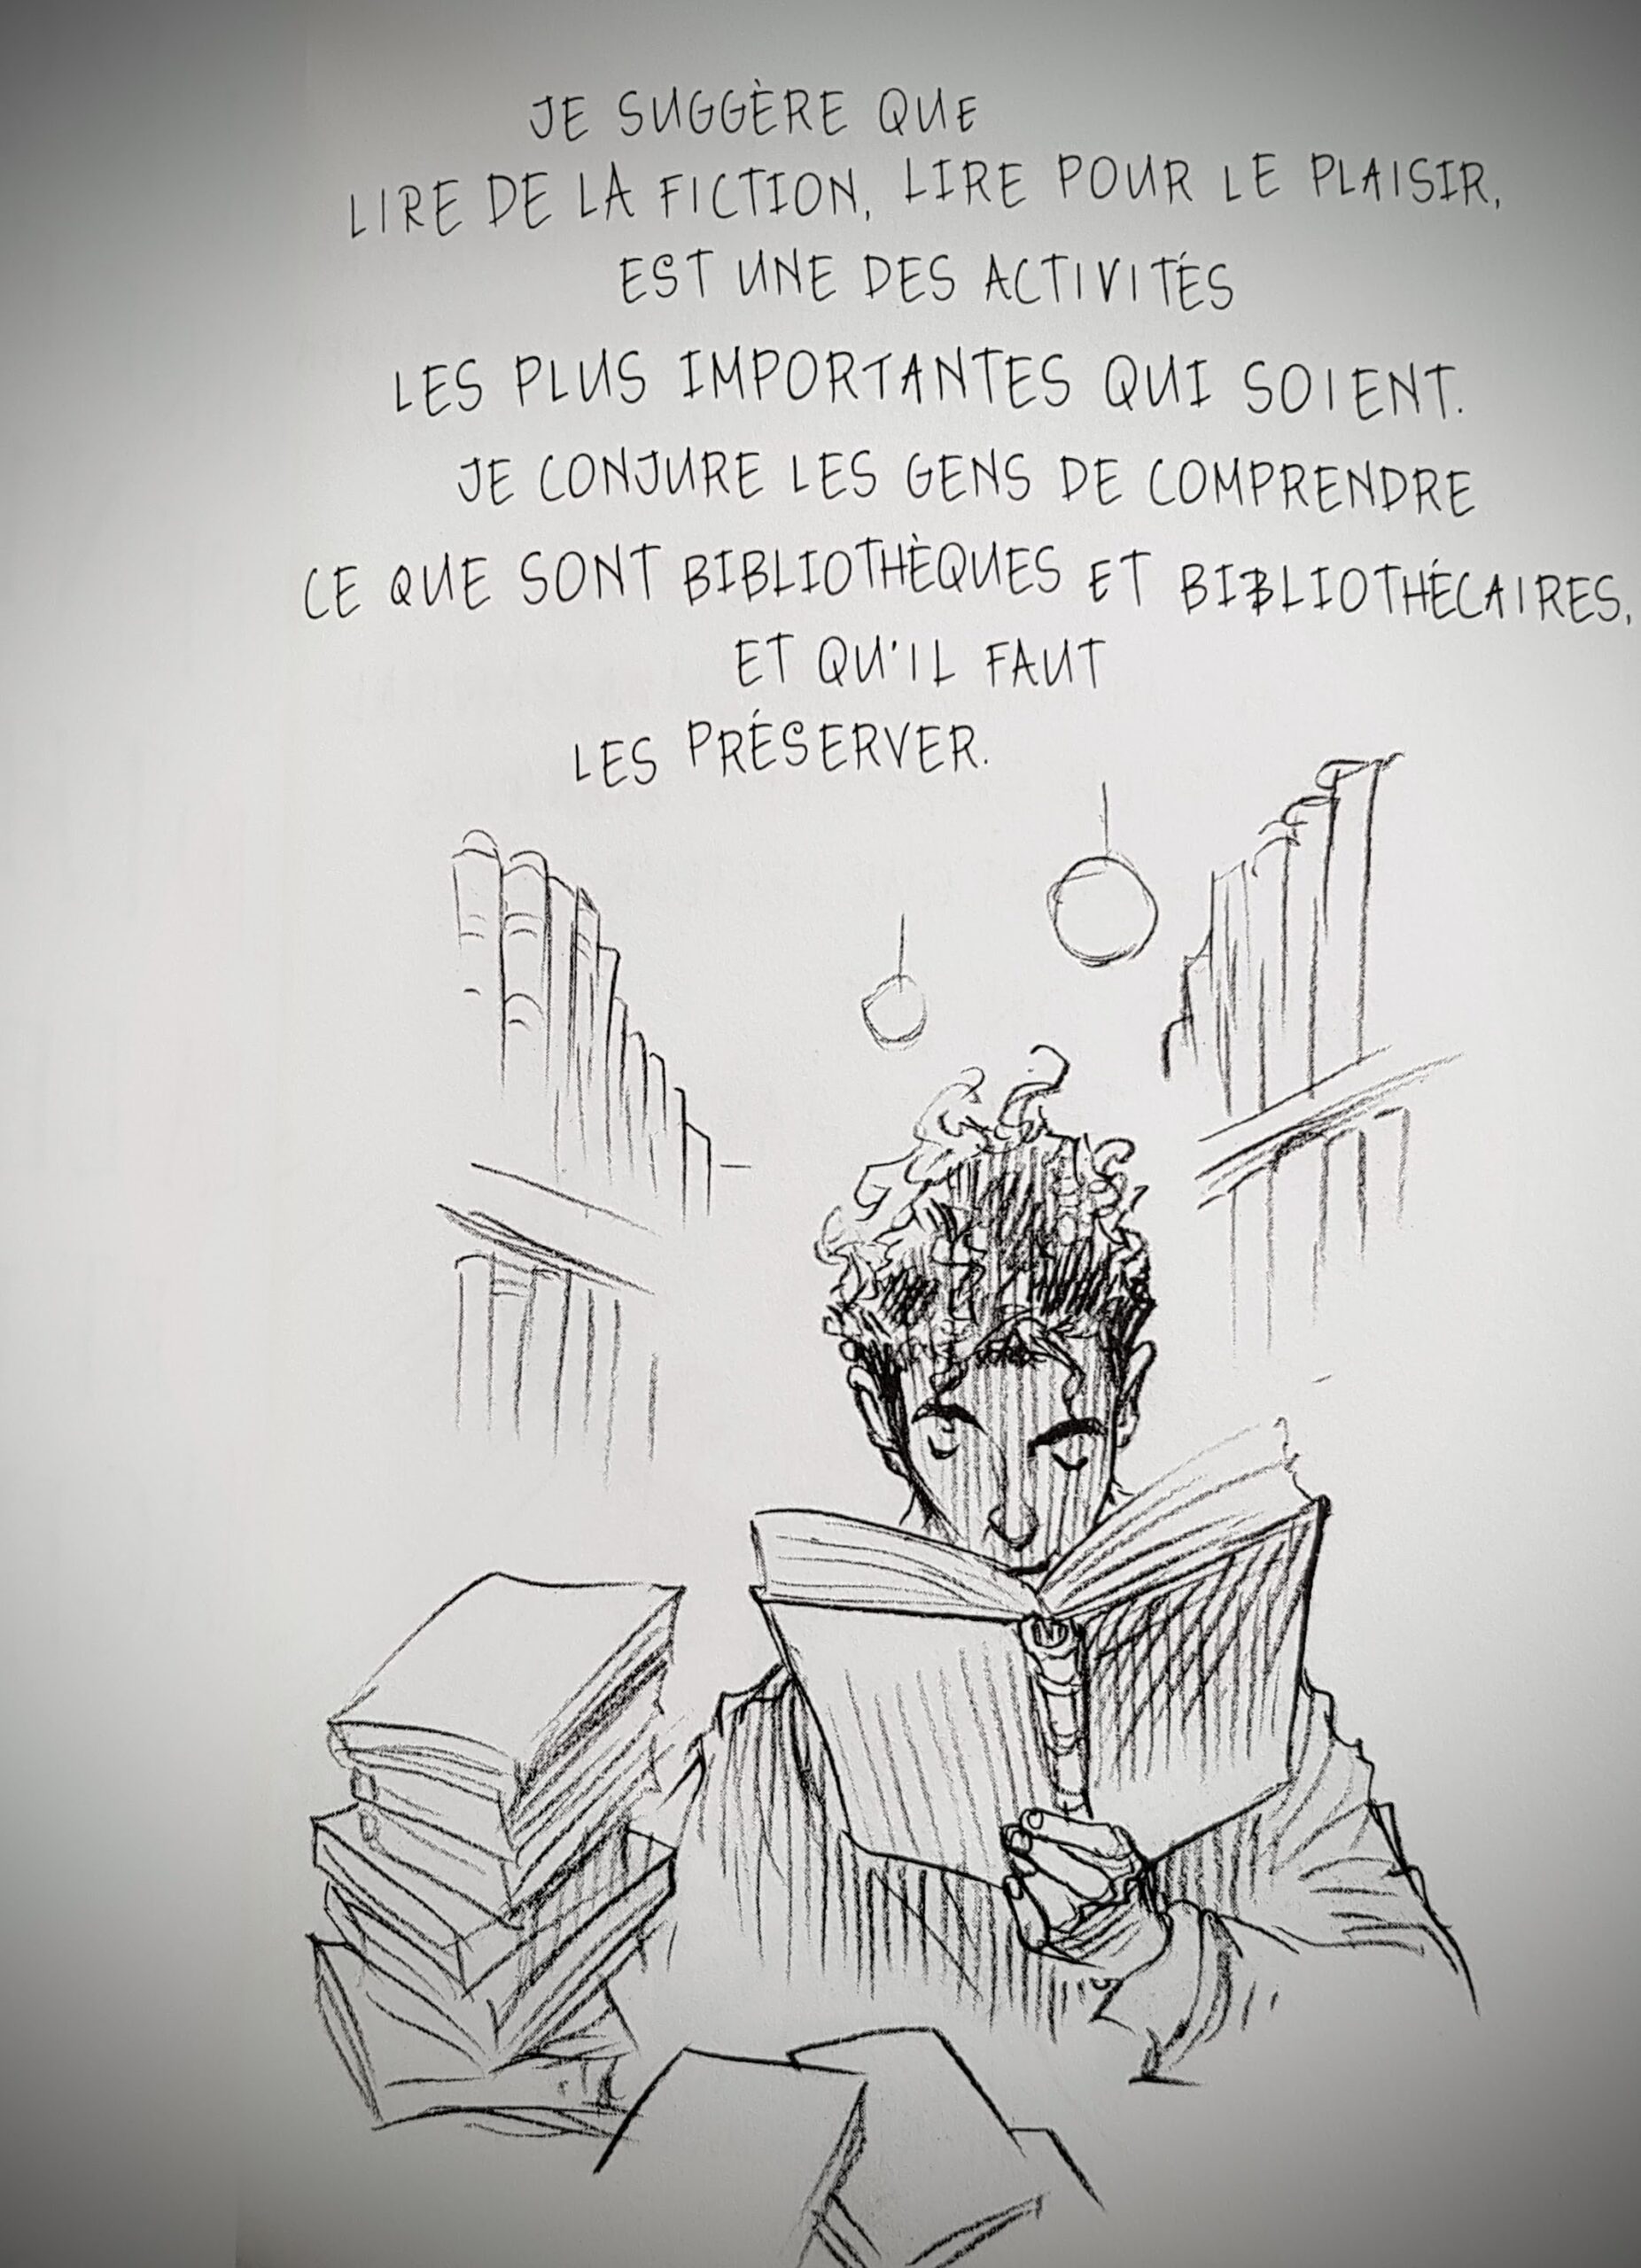 JE SUGGÈRE QUE
LIRE DE LA FICTION, LIRE POUR LE PLAISIR,
EST UNE DES ACTIVITÉS
LES PLUS IMPORTANTES QUI SOIENT.
JE CONJURE LES GENS DE COMPRENDRE
CE QUE SONT BIBLIOTHÈQUES ET BIBLIOTHÉCAIRES,
ET QU'IL FAUT
LES PRÉSERVER.